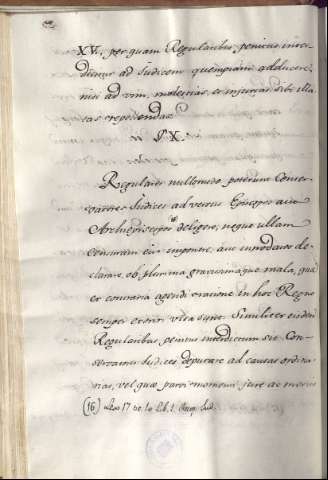 XV., per quam Regularibus, penitus inter-
dicitur ad Judicem quempiam adducere,
nisi ad vim, molestias, et injurias sibi illa-
tas repellendas.
§ X.
Regulares nullomodo poterunt Conser-
vatores Judices adversus Episcopos aut
Archiepiscopos deligere, neque ullam
censuram eis imponere, aut innodatos de-
clarare, ob plurima gravissimaque mala, quæ
ex contraria agendi ratione in hoc Regno
semper exorta visa sunt. Similiter eisdem
Regularibus, penitus interdictum sit Con-
servatores Judices deputare ad causas ordina-
rias, vel quæ parvi momenti jure ac merito
(16) Ley 17 de lo Lib. 1.